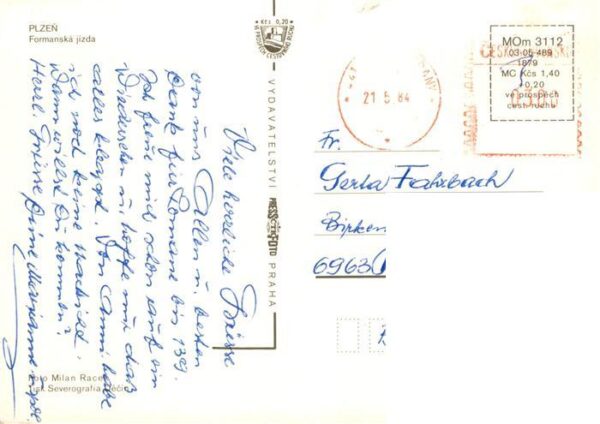 PLZEŇ
Formanská jízda
Kčs 0,20
VE PROSPĚCH CESTOVNÍHO RUCHU
Viele herzliche Grüsse
von uns Allen u. besten
Dank für Romane bis 1399.
Ich freue mich schon auf ein
Wiedersehen u. hoffe nur das
alles klappt. Von Anni habe
ich noch keine Nachricht.
Wann willst Du kommen?
Herzl. Grüsse Deine
Foto Milan Racek
Tisk Severografia Děčín
VYDAVATELSTVÍ PRESSFOTO PRAHA
21 5 84
MOm 3112
03-05-489
1879
MC Kčs 1,40
+0,20
ve prospěch
cest. ruchu
Fr.
Gerta Fahrbach
Birken
6963